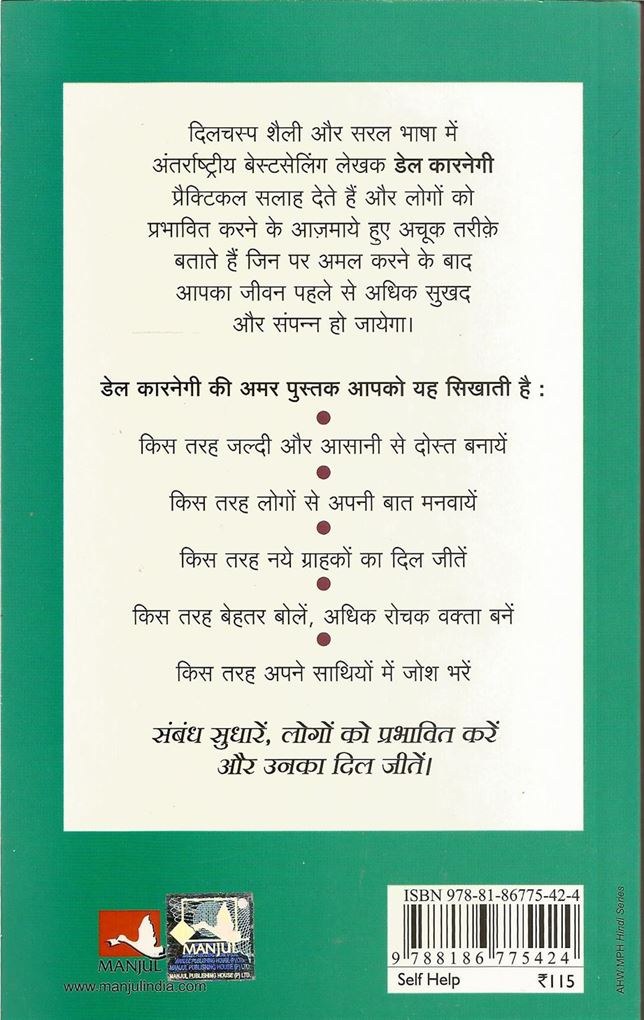 दिलचस्प शैली और सरल भाषा में
अंतर्राष्ट्रीय बेस्टसेलिंग लेखक डेल कारनेगी
प्रैक्टिकल सलाह देते हैं और लोगों को
प्रभावित करने के आज़माये हुए अचूक तरीक़े
बताते हैं जिन पर अमल करने के बाद
आपका जीवन पहले से अधिक सुखद
और संपन्न हो जायेगा।
डेल कारनेगी की अमर पुस्तक आपको यह सिखाती है :
किस तरह जल्दी और आसानी से दोस्त बनायें
किस तरह लोगों से अपनी बात मनवायें
किस तरह नये ग्राहकों का दिल जीतें
किस तरह बेहतर बोलें, अधिक रोचक वक्ता बनें
किस तरह अपने साथियों में जोश भरें
संबंध सुधारें, लोगों को प्रभावित करें
और उनका दिल जीतें।
MANJUL
www.manjulindia.com
MANJUL
MANJUL PUBLISHING HOUSE (P) LTD.
ISBN 978-81-86775-42-4
9 788186 775424
Self Help ₹115
AHW/MPH Hindi Series